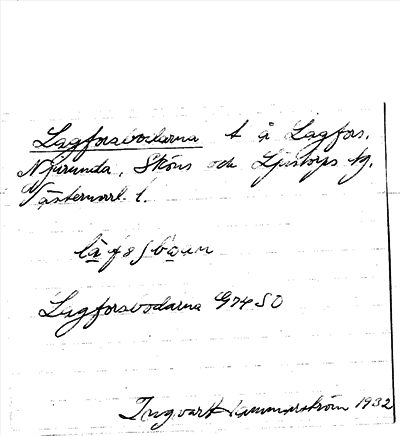 Lagforsbodarna t å Lagfors,
Njurunda, Sköns och Ljustorps tg,
Västernorrl. l.
Lagforsbodarna G74 SO
Ingvar Hammarström 1932